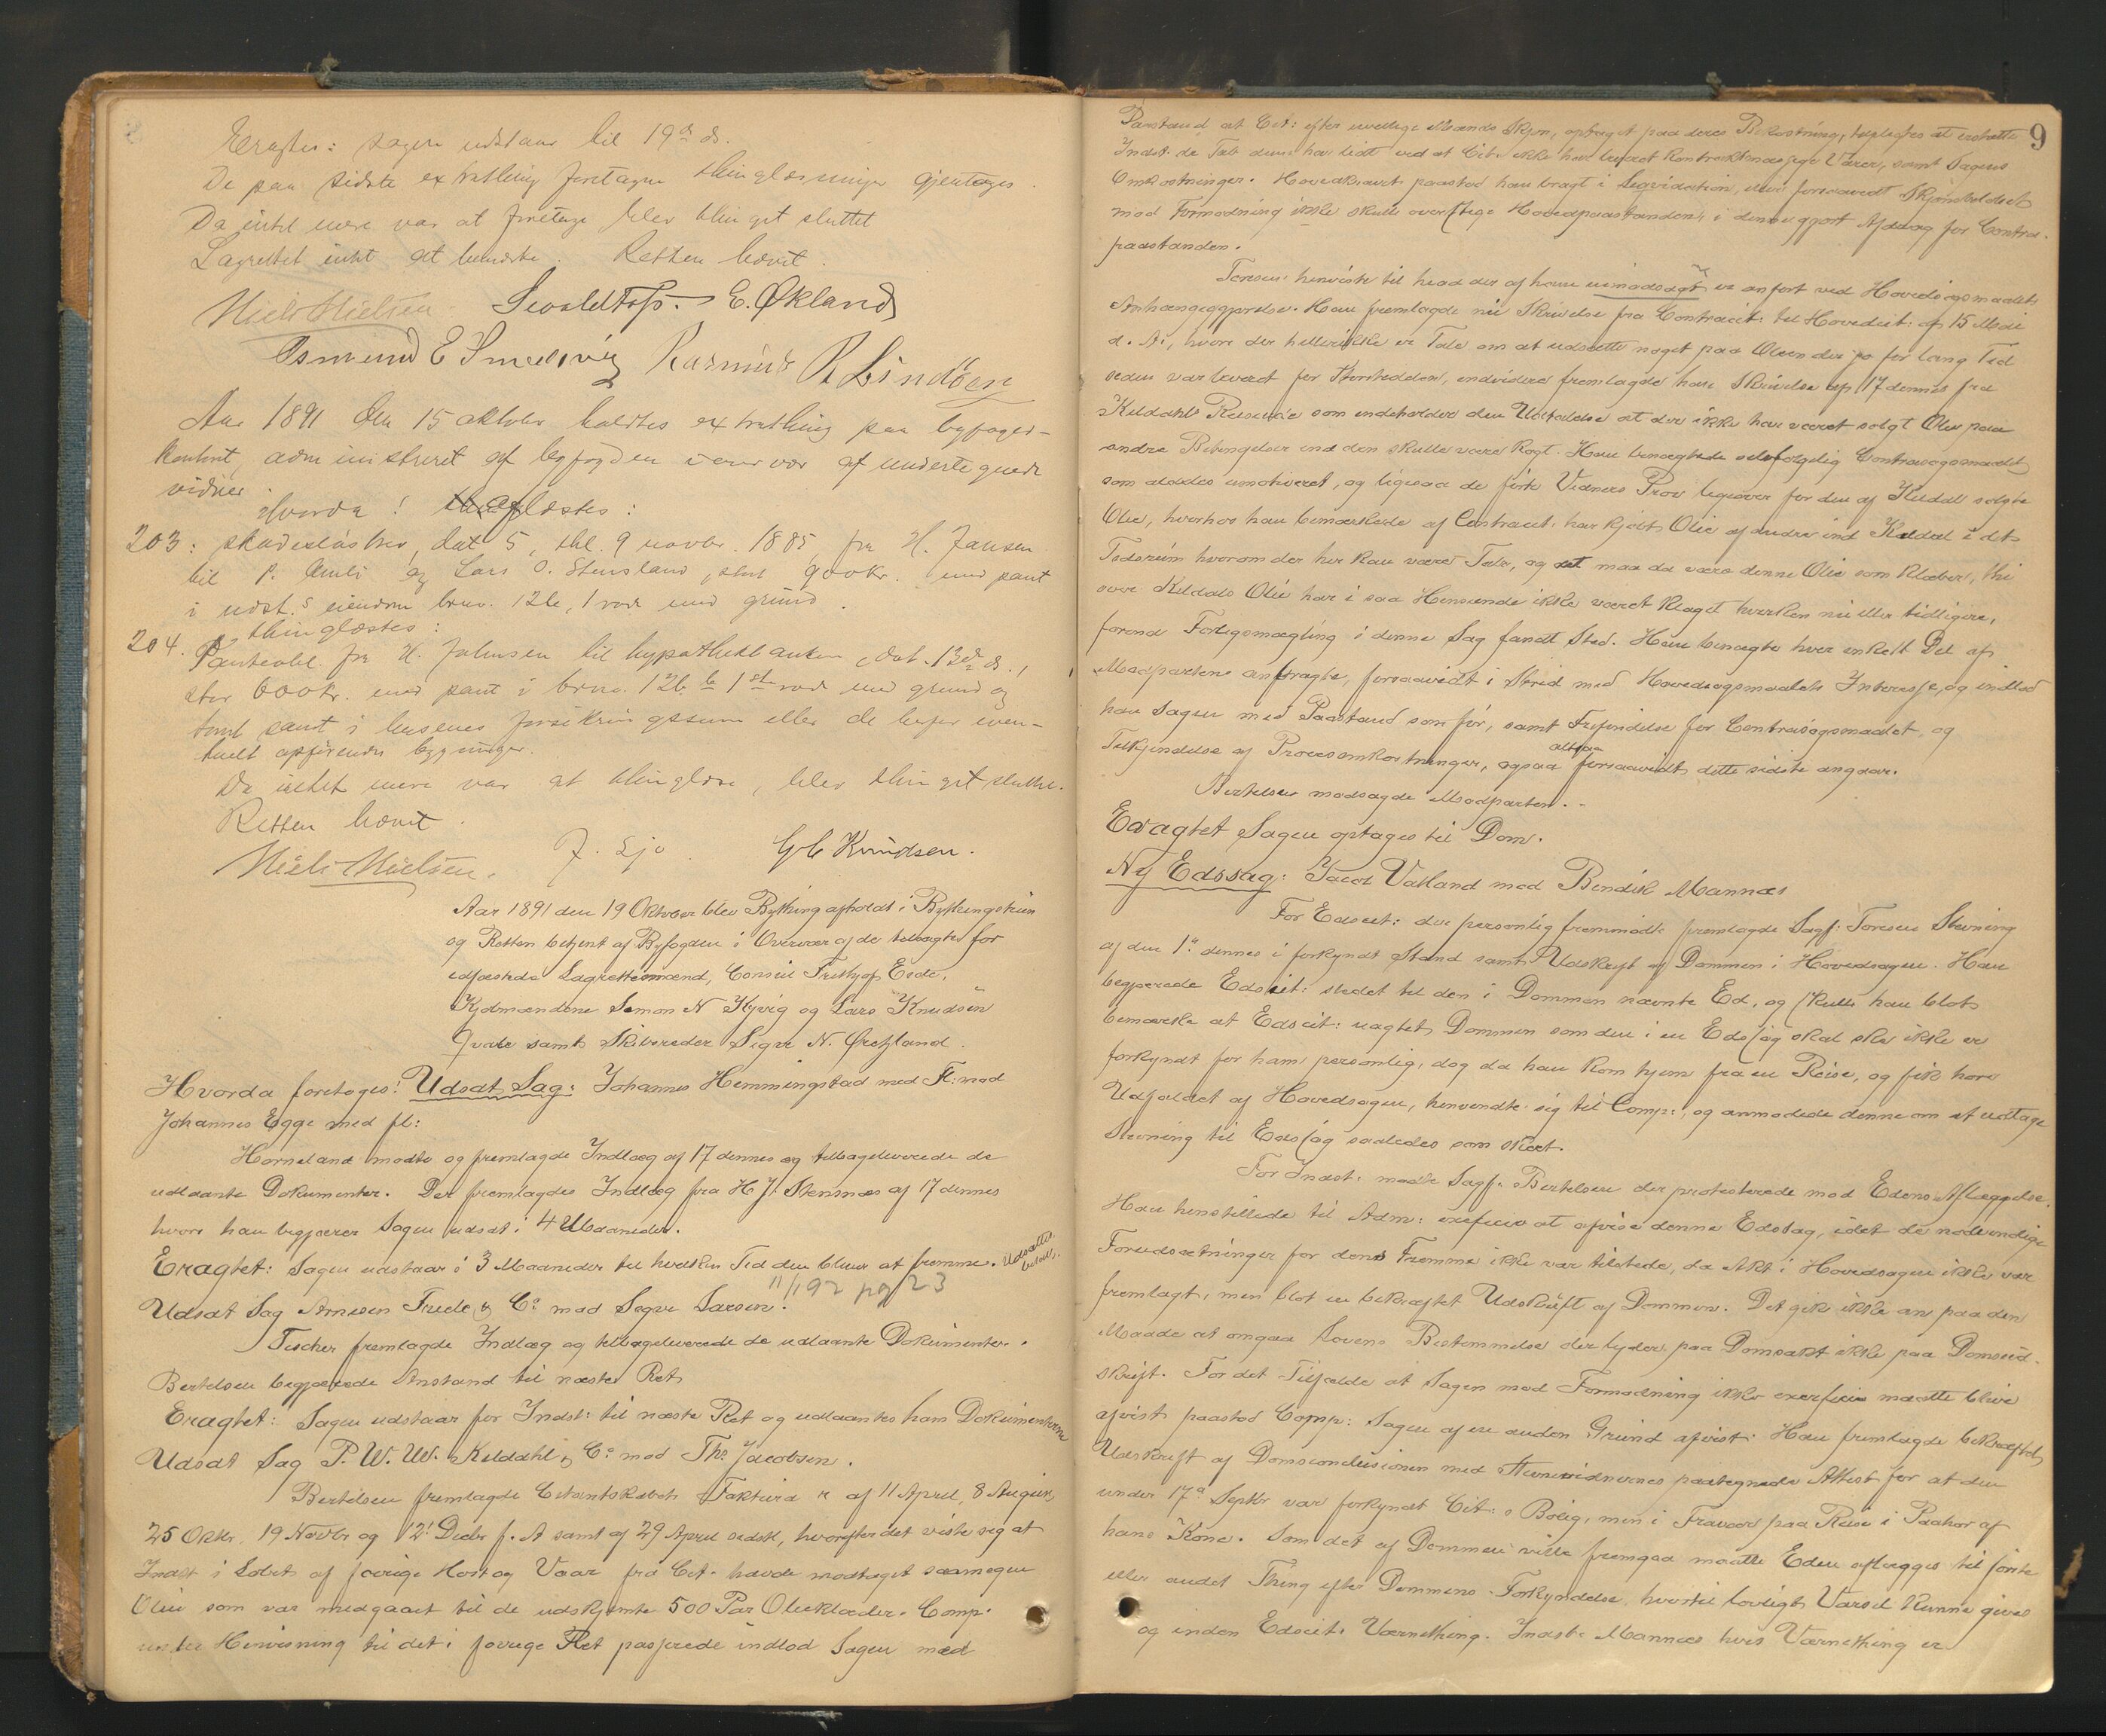 Eragtes: Sagen udstaar til 19de ds.
De paa sidste extrathing foretagne thinglæsninger gjentages.
Da intet mere var at foretage blev thinget sluttet
Lagrettet intet at bemærke. Retten hævet.
Niels Nielsen. E. Økland
Asmund E Smedsvig Rasmus R Lindöen
Aar 1891 den 15 oktober holdtes extrathing paa byfoged-
kontoret, administreret af byfogden i overvær af undertegnede
vidner.
Hvorda: aflæstes:
203: skadesløsbrev, dat 5, thl. 9 novbr. 1885, fra H. Jansen
til P. Amli og Lars O. Stensland, stort 900 kr. med pant
i udst.s eiendom brno. 126, 1 rode med grund.
thinglæstes:
204. Panteobl. fra H. Johnsen til hypothekbanken, dat. 13de ds.,
stor 600 kr. med pant i brno. 126 b 1ste rode med grund og
tomt samt i husenes forsikringssum eller de heraf even-
tuelt opførende bygninger.
Da intet mere var at thinglæse, blev thinget sluttet.
Retten hævet.
Niels Nielsen. J. Sjo. Knudsen.
Aar 1891 den 19 Oktober blev Bything afholdt i Bythingstuen
og Retten betjent af Byfogden i Overvær af de tilsagte for
edfæstede Lagrettesmænd, Consul Frithjof Eide,
Kjøbmændene Simon N Kyvig og Lars Knudsen
Qvale samt Skibsreder Sigv N. Øretzland.
Hvorda foretoges: Udsat Sag: Johannes Hemmingstad med Fl: mod
Johannes Egge med fl:
Horneland mødte og fremlagde Indlæg af 17 dennes og tilbageleverede de
udlaante Dokumenter. Der fremlagdes Indlæg fra H. J. Stensnæs af 17 dennes
hvori han begjærer Sagen udsat i 4 Maaneder.
Eragtet: Sagen udstaar i 3 Maaneder til hvilken Tid den bliver at fremme. Udsættes
11/1 92 pg 23
Udsat Sag Arnesen Trude & Co mod Sigv Larsen.
Tischer fremlagde Indlæg og tilbageleverede de udlaante Dokumenter.
Bertelsen begjærede Anstand til næste Ret
Eragtet: Sagen udstaar for Indst: til næste Ret og udlaantes ham Dokumenterne
Udsat Sag P. W. W. Kildahl & Co mod Ths Jacobsen.
Bertelsen fremlagde Citantskabets Faktura af 11 April, 8 August,
25 Oktbr, 19 Novbr og 12 Decbr f. A samt af 29 April sidstl, hvorefter det viste sig at
Indst i Løbet af forrige Høst og Vaar fra Cit. havde modtaget saamegen
Olie som var medgaaet til de udskjæmte 500 Par Olieklæder. Comp.
under Henvisning til det i forrige Ret passerede indlod Sagen med
9
Paastand at Cit: efter uvillige Mænds Skjøn, optaget paa deres Bekostning, tilpligtes at erstatte
Indst. de Tab denne har lidt ved at Cit. ikke har leveret kontraktmæssige Varer, samt Sagens
Omkostninger. Hovedkravet paastod han bragt i Liqvidation, eller forsaavidt Skjønsbeløbet
mod Formodning ikke skulde overstige Hovedpaastanden, i denne gjort Afdrag for Contra-
paastanden.
Toresen henviste til hvad der af ham uimodsagt er anført ved Hovedsøgsmaalets
Anhængiggjørelse. Han fremlagde nu Skrivelse fra Contracit: til Hovedcit: af 15 Mai
d. A:, hvori der hellerikke er Tale om at udsætte noget paa Olien der jo for lang Tid
siden var leveret fra, endvidere fremlagde han Skrivelse af 17 dennes fra
Kildahls som indeholder den Udtalelse at der ikke har været solgt Olie paa
andre Betingelser end den skulde være kogt. Han benægtede selvfølgelig Contrasøgsmaalet
som aldeles umotiveret, og ligesaa de førte Vidners Prov ligeover for den af Kildahl solgte
Olie, hvorhos han bemærkede at Contracit. har kjøbt Olie af andre end Kildahl i det
Tidsrum hvorom der her kan være Tale, og det maa da være denne Olie som klæber, thi
over Kildals Olie har i saa Henseende ikke været klaget hverken nu eller tidligere,
førend Forligsmægling i denne Sag fandt Sted. Han benægter hver enkelt Del af
Modpartens anbragte, forsaavidt i Strid med Hovedsøgsmaalets Interesse, og indlod
han Sagen med Paastand som før, samt Frifindelse for Contrasøgsmaalet, og
Tilkjendelse af Procesomkostninger, ogsaa altsaa forsaavidt dette sidste angaar.
Bertelsen modsagde Modparten.
Eragtet Sagen optages til Dom.
Ny Edssag: Jacob Vatland mod Bendik Mannæs
For Edscit: der personlig fremmødte fremlagde Sagf: Toresen Stevning
af den 1ste dennes i forkyndt Stand samt Udskrift af Dommen i Hovedsagen. Han
begjærede Edscit: stedet til den i Dommen nævnte Ed, og skulde han blot
bemærke at Edscit: uagtet Dommen som den i en Edssag skal ske ikke er
forkyndt for ham personlig, dog da han kom hjem fra en Reise, og fik høre
Udfaldet af Hovedsagen, henvendte sig til Comp:, og anmodede denne om at udtage
Stevning til Edssag saaledes som skeet.
For Indst. mødte Sagf. Bertelsen der protesterede mod Edens Aflæggelse.
Han henstillede til Adm: exoficio at afvise denne Edssag, idet de nødvendige
Forudsætninger for dens Fremme ikke var tilstede, da Akt i Hovedsagen ikke var
fremlagt, men blot en bekræftet Udskrift af Dommen. Det gik ikke an paa den
Maade at omgaa Lovens Bestemmelse der lyder paa Domsakt ikke paa Domsud-
skrift. For det Tilfælde at Sagen mod Formodning ikke exoficio maatte blive
afvist paastod Comp: Sagen af en anden Grund afvist: Han fremlagde bekræftet
Udskrift af Domsconclusionen med Stevnevidnernes paategnede Attest for at den
under 17de Septbr var forkyndt Cit:s Bolig, men i Fravær paa Reise i Paahør af
hans Kone. Som det af Dommen ville fremgaa maatte Eden aflægges til første
eller andet Thing efter Dommens Forkyndelse, hvortil lovligt Varsel kunne gives
og inden Edscit: Værnething. Indst: Mannæs hvis Værnething er